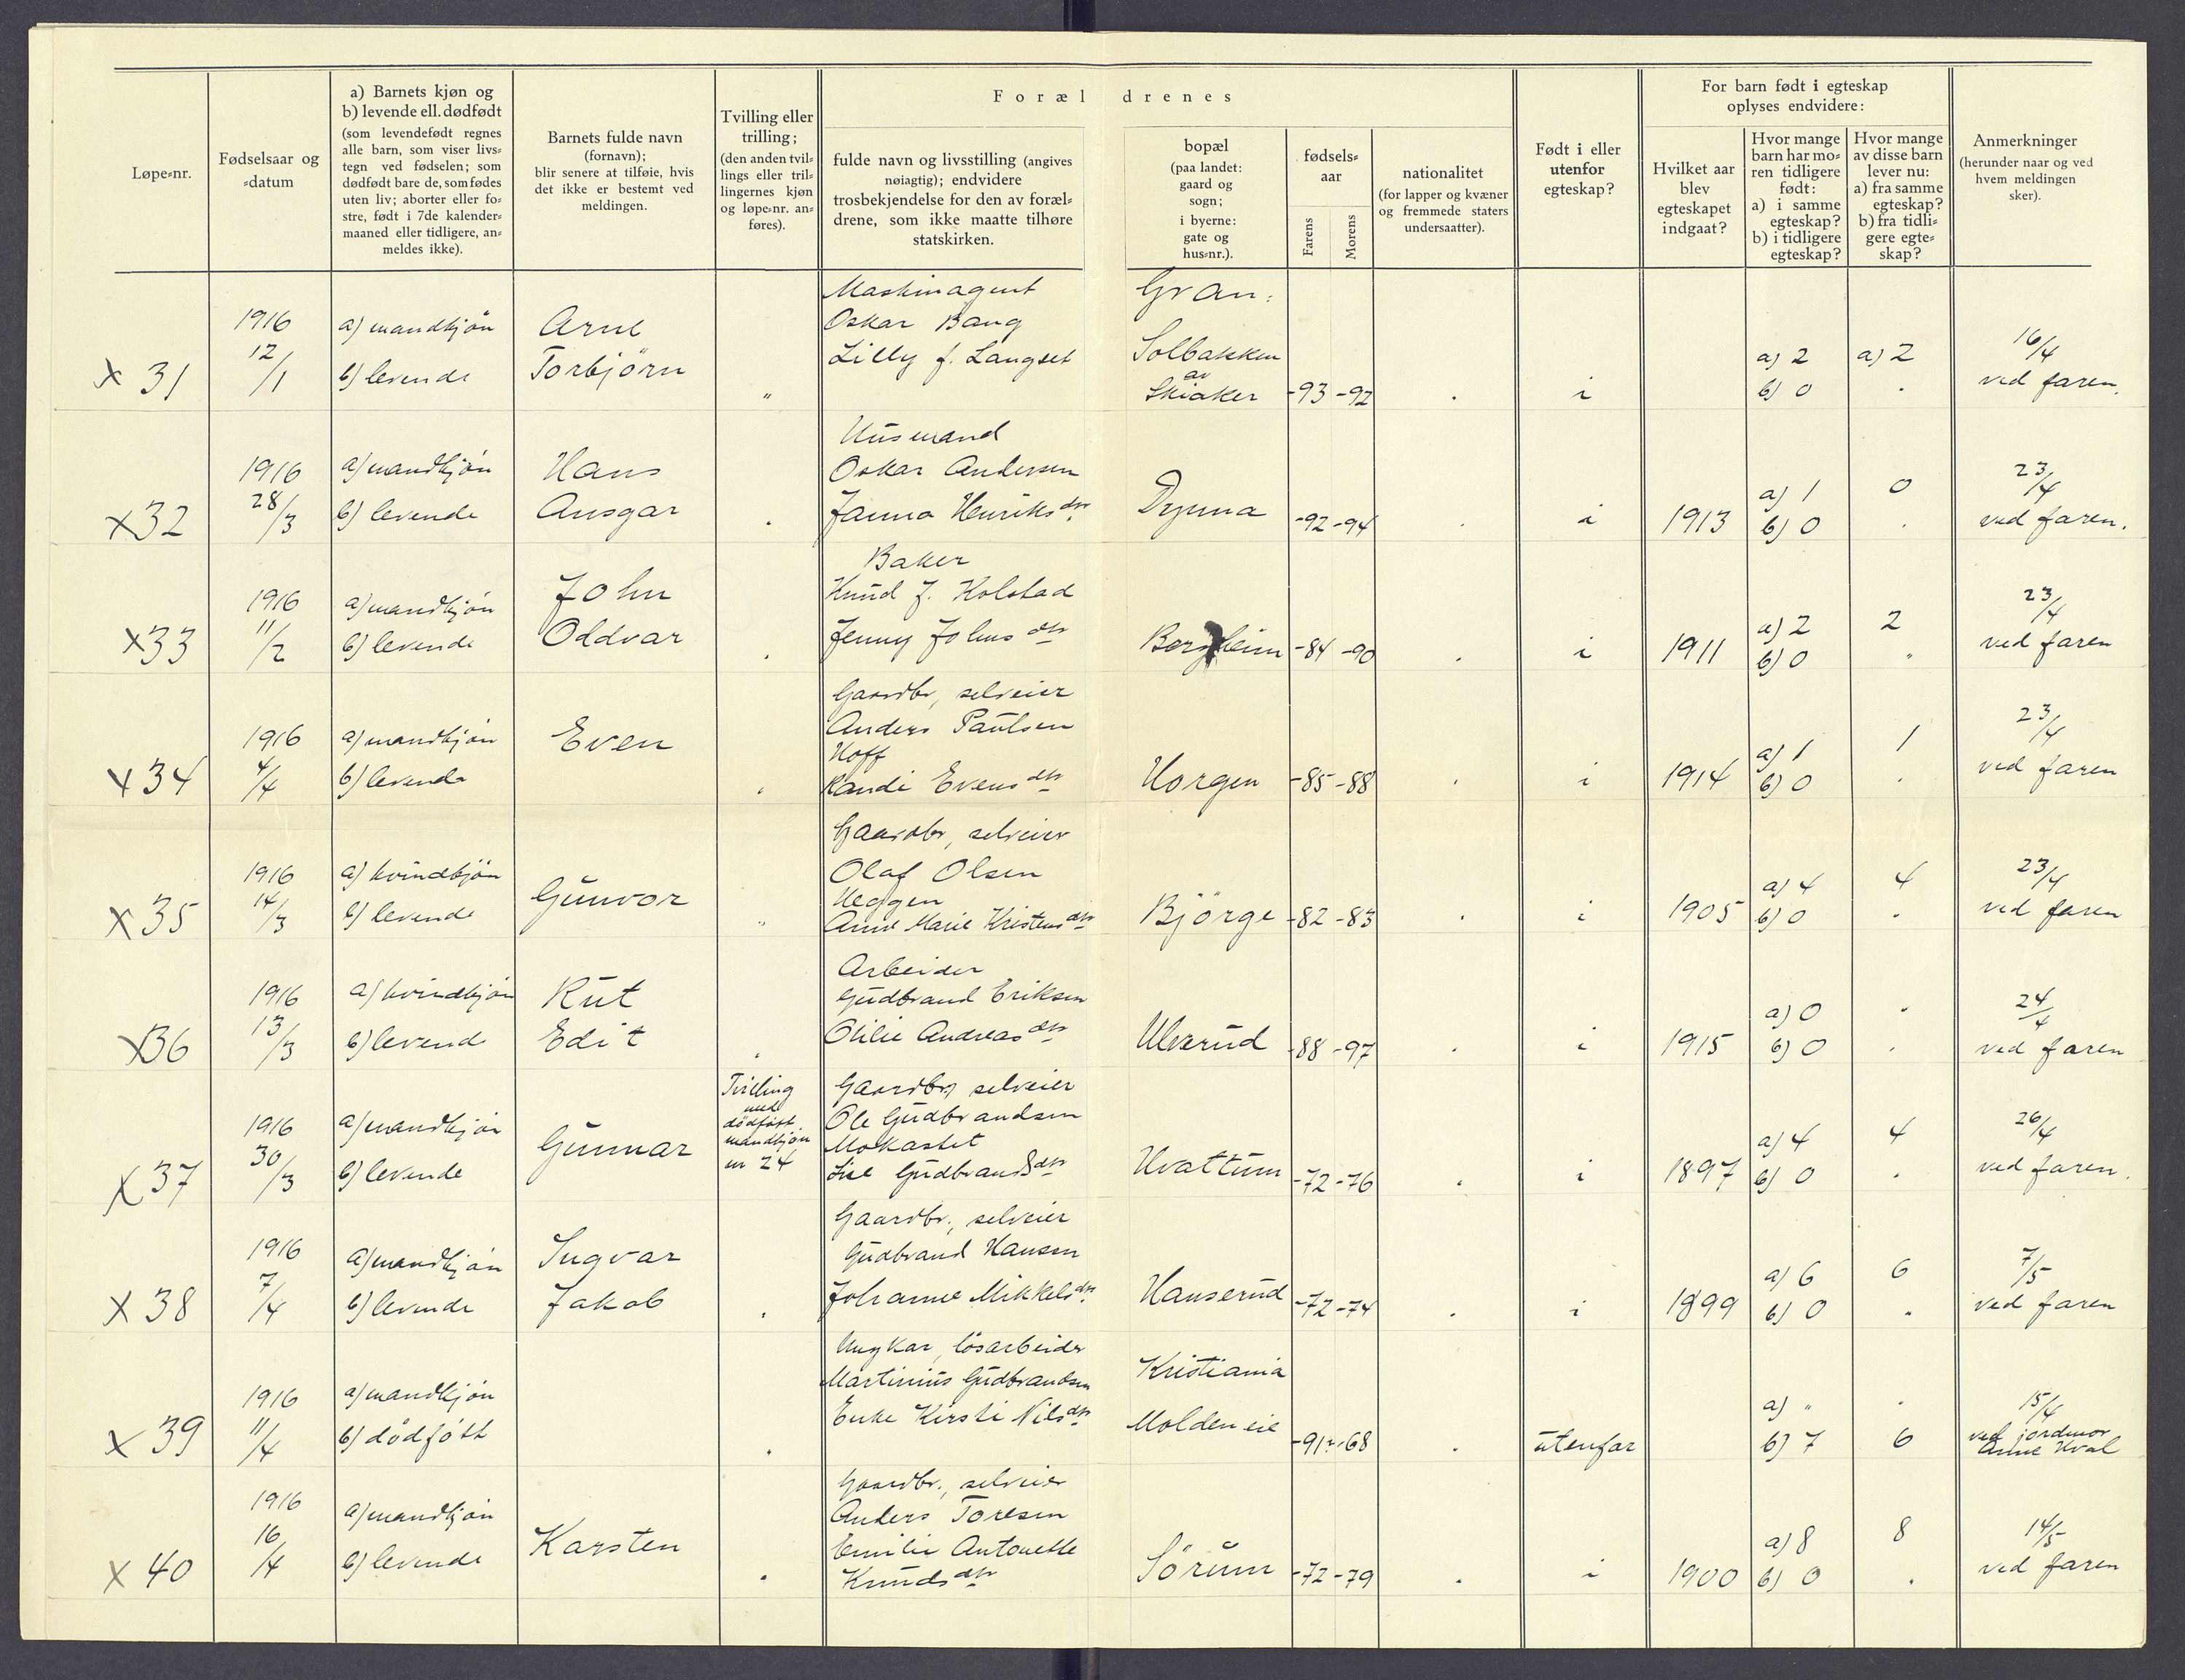 Løpe-nr.
Fødselsaar og
-datum
a) Barnets kjøn og
b) levende ell. dødfødt
(som levendefødt regnes
alle barn, som viser livs-
tegn ved fødselen; som
dødfødt bare de, som fødes
uten liv; aborter eller fo-
stre, født i 7de kalender-
maaned eller tidligere, an-
meldes ikke).
Barnets fulde navn
(fornavn);
blir senere at tilføie, hvis
det ikke er bestemt ved
meldingen.
Tvilling eller
trilling;
(den anden tvil-
lings eller tril-
lingernes kjøn
og løpe-nr. an-
føres).
Forældrenes
fulde navn og livsstilling (angives
nøiagtig); endvidere
trosbekjendelse for den av foræl-
drene, som ikke maatte tilhøre
statskirken.
bopæl
(paa landet:
gaard og
sogn;
i byerne:
gate og
hus-nr.).
fødsels-
aar
Farens
Morens
nationalitet
(for lapper og kvæner
og fremmede staters
undersaatter).
Født i eller
utenfor
egteskap?
For barn født i egteskap
oplyses endvidere:
Hvilket aar
blev
egteskapet
indgaat?
Hvor mange
barn har mo-
ren tidligere
født:
a) i samme
egteskap?
b) i tidligere
egteskap?
Hvor mange
av disse barn
lever nu:
a) fra samme
egteskap?
b) fra tidli-
gere egte-
skap?
Anmerkninger
(herunder naar og ved
hvem meldingen
sker).
x 31
1916
12/1
a) mandkjön
b) levende
Arne
Torbjörn
"
Maskinagent
Oskar Bang
Lilly f. Langset
Gran:
Solbakken
av
Skiaker
-93 -92
i
a) 2
b) 0
a) 2
16/4
ved faren.
x 32
1916
28/3
a) mandkjön
b) levende
Hans
Ansgar
Husmand
Oskar Andersen
Janna Henriksdtr
Dynna
-92 -94
i
1913
a) 1
b) 0
0
23/4
ved faren.
x 33
1916
11/2
a) mandkjön
b) levende
John
Oddvar
Baker
Knud J. Kolstad
Jenny Johnsdtr
Bergheim
-84 -90
i
1911
a) 2
b) 0
2
"
23/4
ved faren
x 34
1916
4/4
a) mandkjön
b) levende
Even
Gaardbr, selveier
Anders Paulsen
Hoff
Randi Evensdtr
Horgen
-85 -88
i
1914
a) 1
b) 0
1
23/4
ved faren
x 35
1916
14/3
a) kvindkjön
b) levende
Gunvor
"
Gaardbr, selveier
Olaf Olsen
Heggen
Anne Marie Kristensdtr
Björge
-82 -83
i
1905
a) 4
b) 0
4
23/4
ved faren
x 36
1916
13/3
a) kvindkjön
b) levende
Rut
Edit
Arbeider
Gudbrand Eriksen
Otilie Andreasdtr
Ulverud
-88 -97
i
1915
a) 0
b) 0
"
24/4
ved faren
x 37
1916
30/3
a) mandkjön
b) levende
Gunnar
Tvilling
med
dödfött
mandkjön
nr 24
Gaardbr, selveier
Ole Gudbrandsen
Mokastet
Lise Gudbrandsdtr
Hvattum
-72 -76
i
1897
a) 4
b) 0
4
26/4
ved faren.
x 38
1916
7/4
a) mandkjön
b) levende
Ingvar
Jakob
Gaardbr., selveier
Gudbrand Hansen
Johanne Mikkelsdtr.
Hanserud
-72 -74
i
1899
a) 6
b) 0
6
"
7/5
ved faren
x 39
1916
11/4
a) mandkjön
b) dödfött
Ungkar, lösarbeider
Martinius Gudbrandsen
Enke Kirsti Nilsdtr
Kristiania
Molden eie
-91 -68
utenfor
a) "
b) 7
6
15/4
ved jordmor
Anne Hval
x 40
1916
16/4
a) mandkjön
b) levende
Karsten
Gaardbr., selveier
Anders Toresen
Emilie Antonette
Knudsdtr
Sörum
-72 -79
i
1900
a) 8
b) 0
8
14/5
ved faren